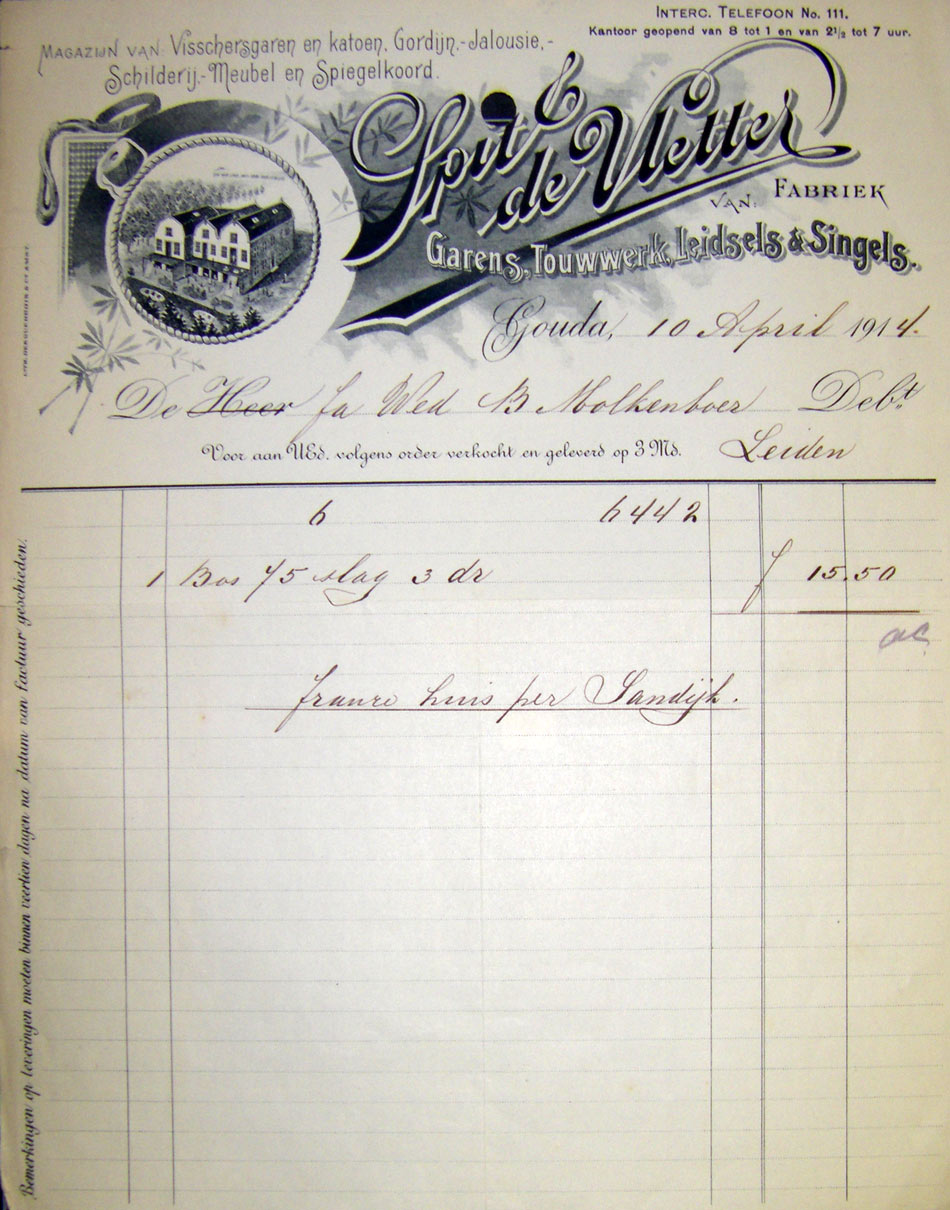 Interc. Telefoon No. 111.
Kantoor geopend van 8 tot 1 en van 2½ tot 7 uur.
Magazijn van Visschersgaren en katoen, Gordijn,-Jalousie,-
Schilderij,-Meubel en Spiegelkoord.
Spit &
de Vletter
van Fabriek
Garens, Touwwerk, Leidsels & Singels.
Gouda, 10 April 1914.
De Heer fa Wed B Molkenboer Debt.
Voor aan UEd. volgens order verkocht en geleverd op 3 Md. Leiden
6 6442
1 Bos 75 slag 3 dr f 15.50
franco huis per Sandijk.
Bemerkingen op leveringen moeten binnen veertien dagen na datum van factuur geschieden.